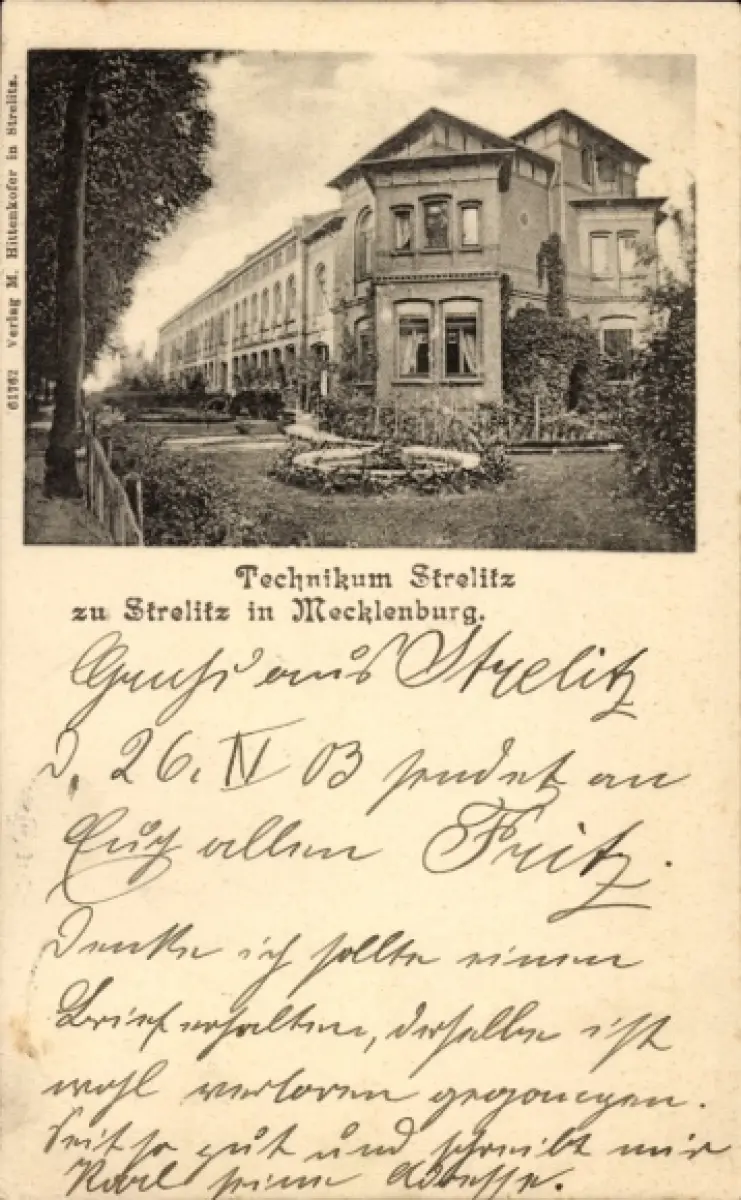 61762 Verlag M. Hittenkofer in Strelitz.
Technikum Strelitz
zu Strelitz in Mecklenburg.
Gruß aus Strelitz
d. 26. IV 03 sendet an
Euch allen Fritz.
Denke ich sollte einen
Brief erhalten, derselbe ist
wohl verloren gegangen.
Seit so gut und schreibt mir
Karl seine Adresse.